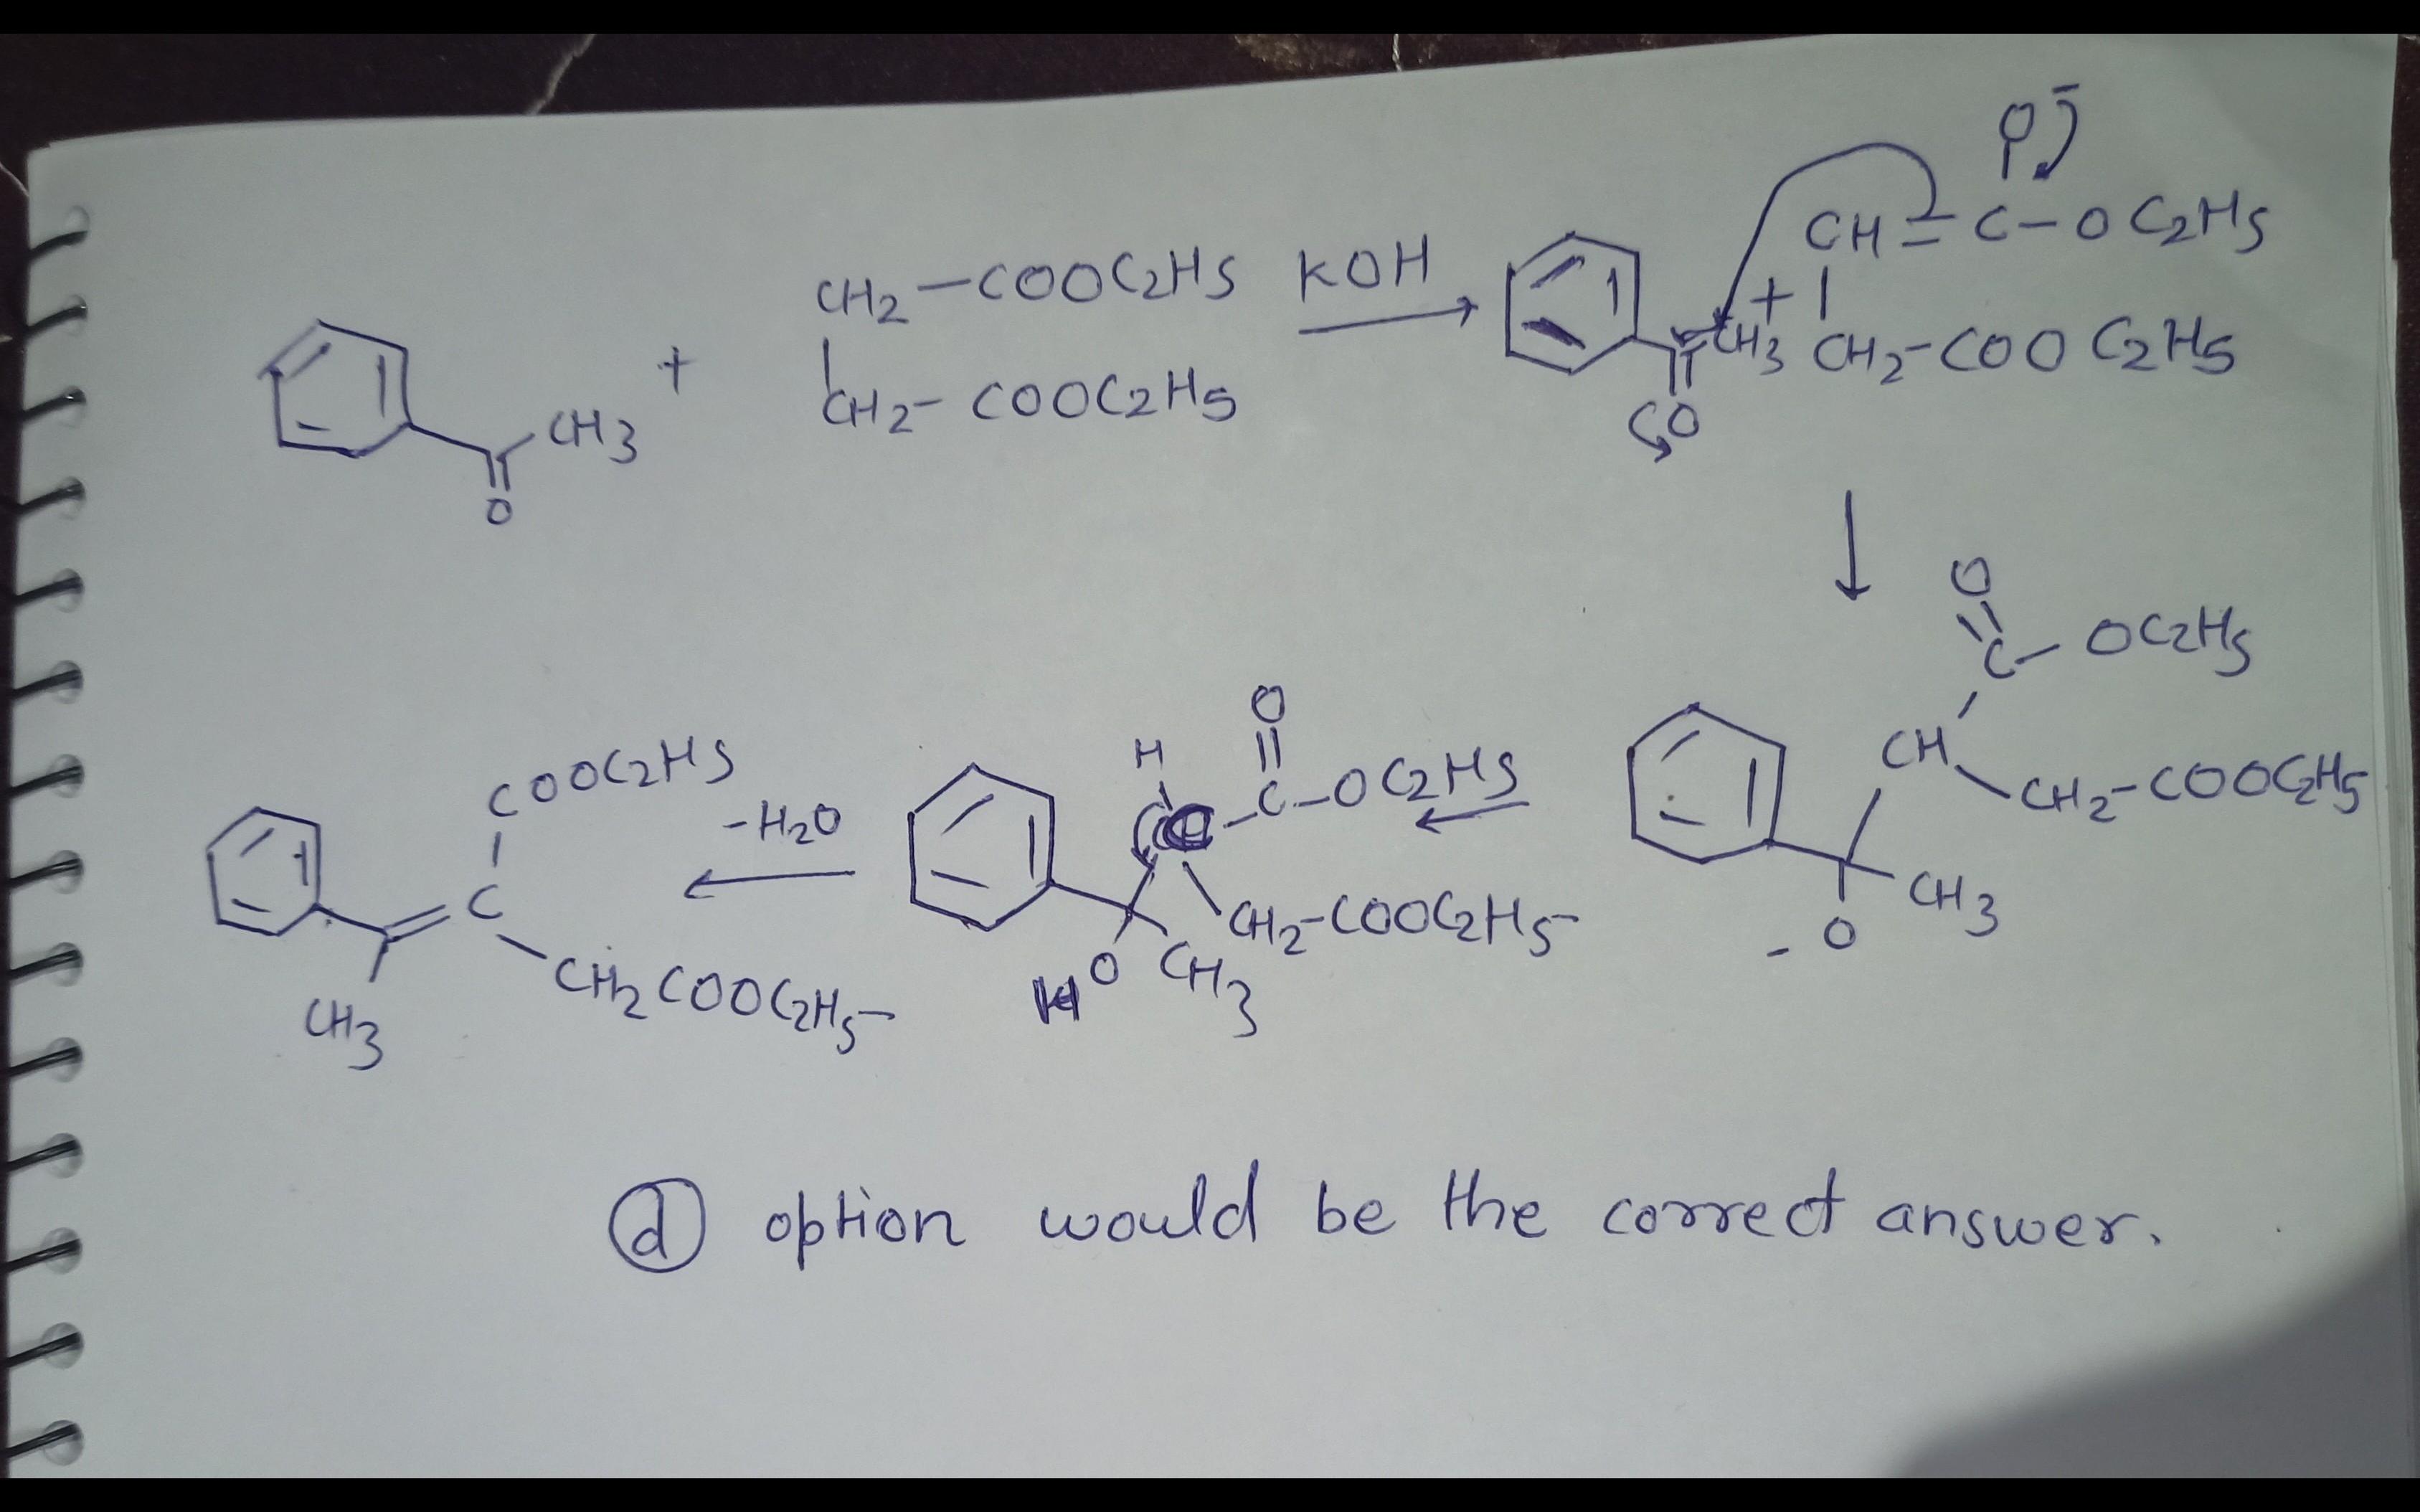 CH2-COOC2H5 KOH CH=C-OC2H5
O-
CH3 + CH2-COOC2H5 CH3 + CH2-COOC2H5
O O
O
C-OC2H5
CH
CH2-COOC2H5
CH3
-O
H O
C-OC2H5
CH2-COOC2H5
HO CH3
-H2O
COOC2H5
C
CH2COOC2H5
CH3
(d) option would be the correct answer.